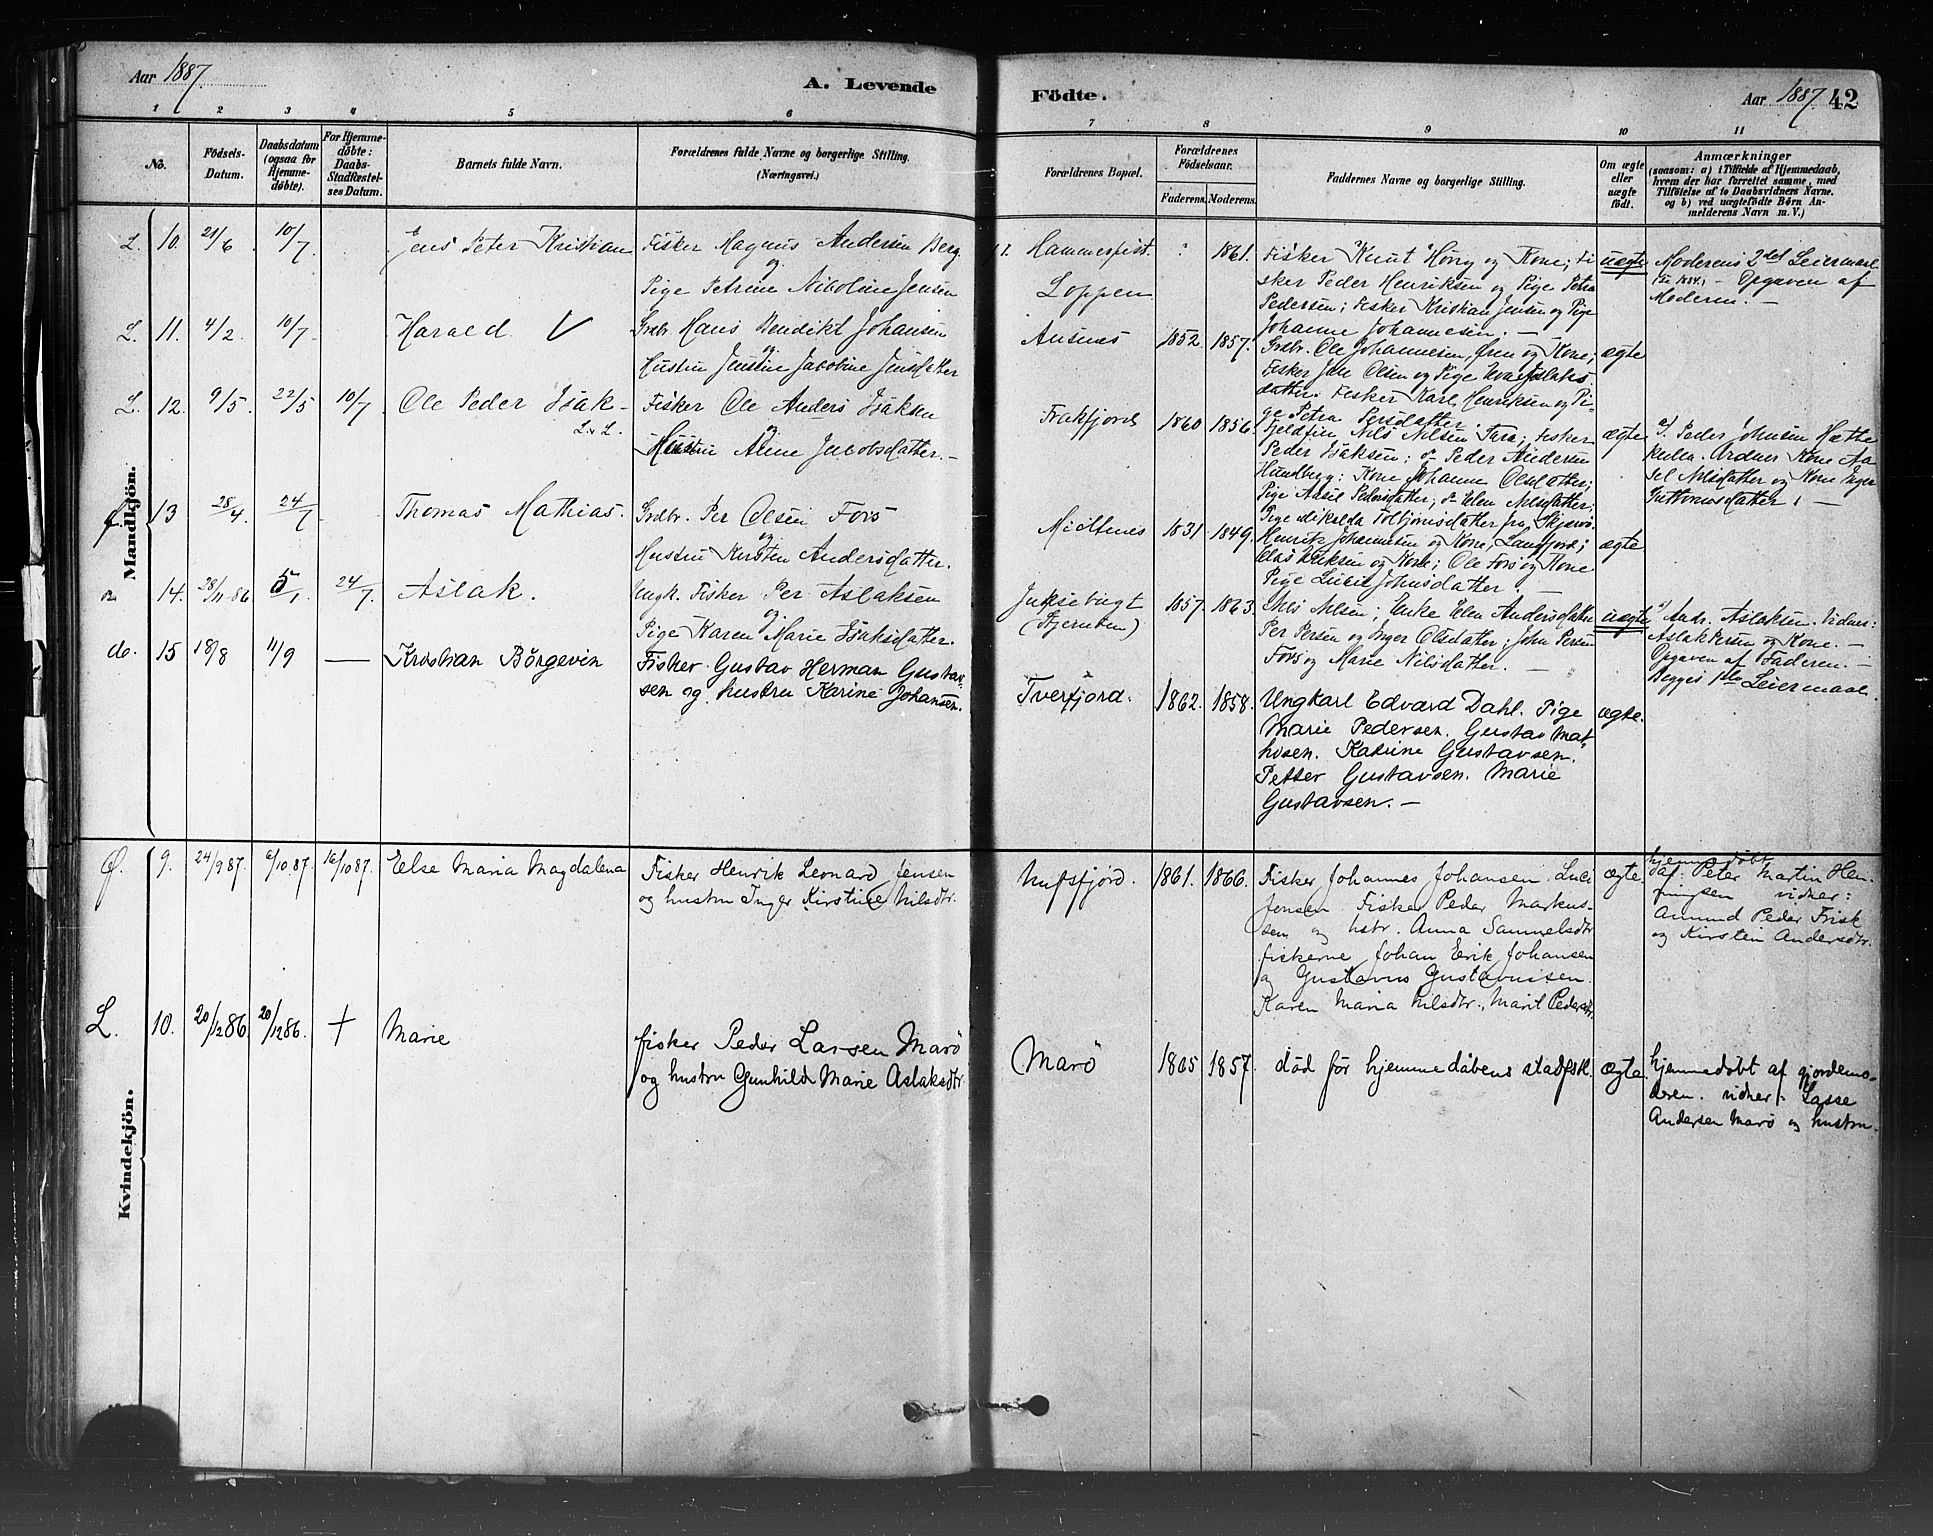 Aar 1887
A. Levende
Födte.
Aar 1887 42
1 2 3 4 5 6 7 8 9 10 11
No.
Födsels-
Datum.
Daabsdatum
(ogsaa for
Hjemme-
døbte).
For Hjemme-
døbte:
Daabs-
Stadfæstel-
ses Datum.
Barnets fulde Navn.
Forældrenes fulde Navne og borgerlige Stilling.
(Næringsvei.)
Forældrenes Bopæl.
Forældrenes
Födselsaar.
Faderens. Moderens.
Faddernes Navne og borgerlige Stilling.
Om ægte
eller
uægte
født.
Anmærkninger
(saasom: a) i Tilfælde af Hjemmedaab,
hvem der har forrettet samme, med
Tilföielse af to Daabsvidners Navne.
og b) ved uægtefödte Börn An-
melderens Navn m. V.)
Mandkjön.
L. 10. 21/6 10/7 Jens Peter Kristian
Fisker Magnus Andersen Berg
og
Pige Petrine Nicoline Jensen
Hammerfest.
Loppen
1861.
Fisker Knut Høvg og Kone; Fi
sker Peder Henriksen og Pige Petra
Pedersen; Fisker Kristian Jensen og Pige
Johanne Johannesen. —
uægte
Moderens 2det Leiermaal
Opgaven af
Moderen. —
L. 11. 4/2 10/7 Harald V
Grdbr. Hans Bendikt Johansen
og
Hustru Jensine Jacobine Jensdatter
Ausnes 1852. 1857.
Grdbr. Ole Johannesen, Øren og Kone;
Fisker Jens Olsen og Pige Aslaks
datter. Fisker Karl Henriksen og Pi-
ge Petra Persdatter.
ægte
L. 12. 9/5 22/5 10/7 Ole Peder Isak -
L. L.
Fisker Ole Anders Isaksen
og
Hustru Alene Jacobsdatter. —
Frakfjord 1860 1856.
Fjeldfin Nils Nilsen Sara; Fisker
Peder Isaksen; do Peder Andersen
Hundberg; Kone Johanne Olsdatter;
Pige Aasil Pedersdatter; do Elen Nilsdatter;
Pige Mikelda Tolbjørnsdatter fra Skjærvö.
ægte
a). Peder Johnsen Hætte
Kone Aa
sel Nilsdatter og Kone Inger
Guttormsdatter. —
13 28/4 24/7 Thomas Mathias.
Grdbr. Per Olsen Fors
og
Hustru Kirsten Andersdatter.
Midtnes 1831 1849.
Henrik Johannesen og Kone, Langfjord;
Eriksen og Kone; Ole Fors og Kone
Pige Lucie Johnsdatter. —
ægte
14. 28/11-86 5/1 24/7 Aslak.
Ungk. Fisker Per Aslaksen
og
Pige Karen Marie Isaksdatter.
(Stjernøen) 1857. 1863.
Nils Nilsen; Enke Elen Andersdatter
Per Persen og Inger Olsdatter; John Persen
Fors og Marie Nilsdatter. —
uægte
a) Andr. Aslaksen. Vidner:
Aslak Persen og Kone. —
Opgaven af Faderen. —
Begges 1ste Leiermaal.
do. 15 18/8 11/9 — Kristian Börgevin
Fisker Gustav Herman Gustav-
sen og hustru Karine Johansen.
Tverfjord. 1862. 1858.
Ungkarl Edvard Dahl. Pige
Marie Pedersen. Gustav Mat
hisen. Katrine Gustavsen.
Petter Gustavsen. Marie
Gustavsen. —
ægte.
Kvindekjön.
Ø. 9. 24/9 87. 6/10 87. 16/10 87. Else Maria Magdalena
Fisker Henrik Leonard Jensen
og hustru Inger Kirstine Nilsdtr.
Nufsfjord. 1861. 1866.
Fisker Johannes Johansen. Luci
Jensen. Fisker Peder Markus-
sen og hstr. Anna Sammelsdtr
fiskerne Johan Erik Johansen
og Gustavus Gustavussen.
Karen Maria Nilsdtr. Marit Pedersdtr.
ægte
hjemmedøbt
af: Peter Martin Hen-
ningsen vidner:
Amund Peder Frisk
og Kirstein Andersdtr.
L. 10. 20/12 86. 20/12 86. + Marie
fisker Peder Larsen Marö
og hustru Gunhild Marie Aslaksdtr
Marö 1865 1857.
död för hjemmedåbens stadfsk.
ægte
hjemmedöbt af gjordemo-
deren. vidner: Lasse
Andersen Marö og hustru.